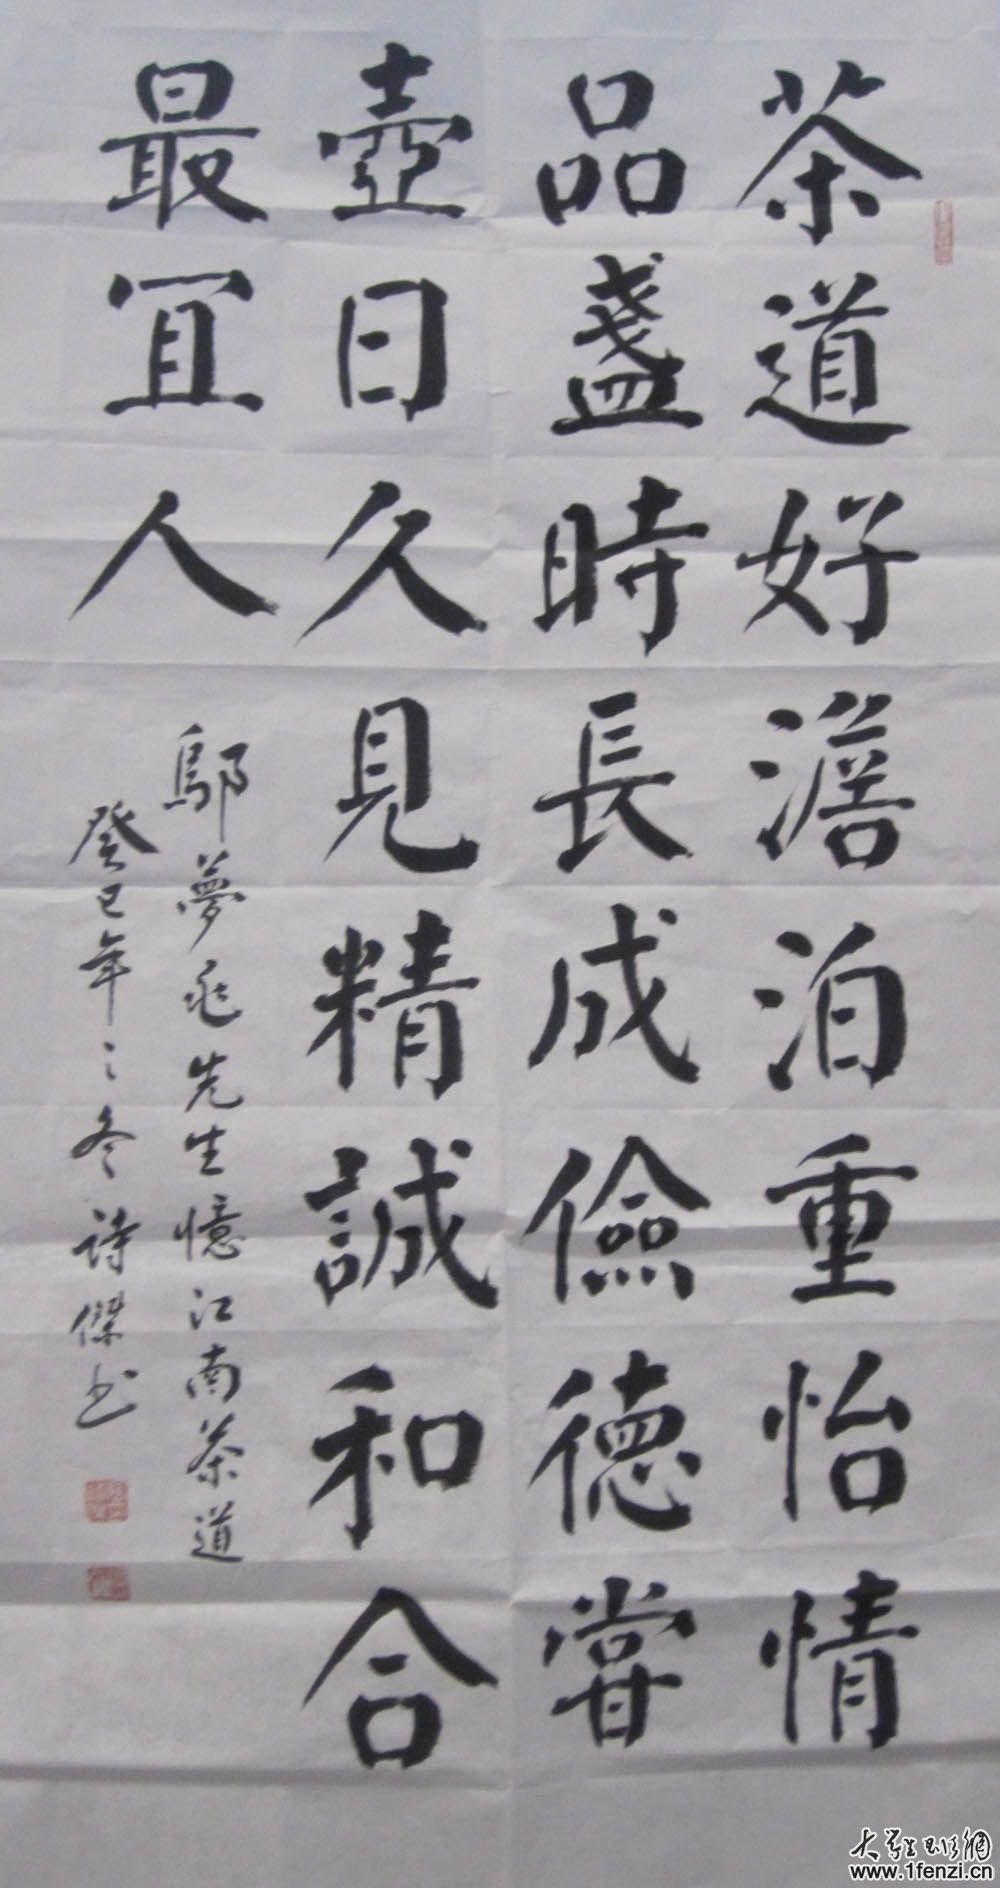 茶道好澹泊重怡情
品盞時長成儉德嘗
壺日久見精誠和合
最宜人
鄔夢兆先生憶江南茶道
癸巳年之冬詩傑书
www.1fenzi.cn